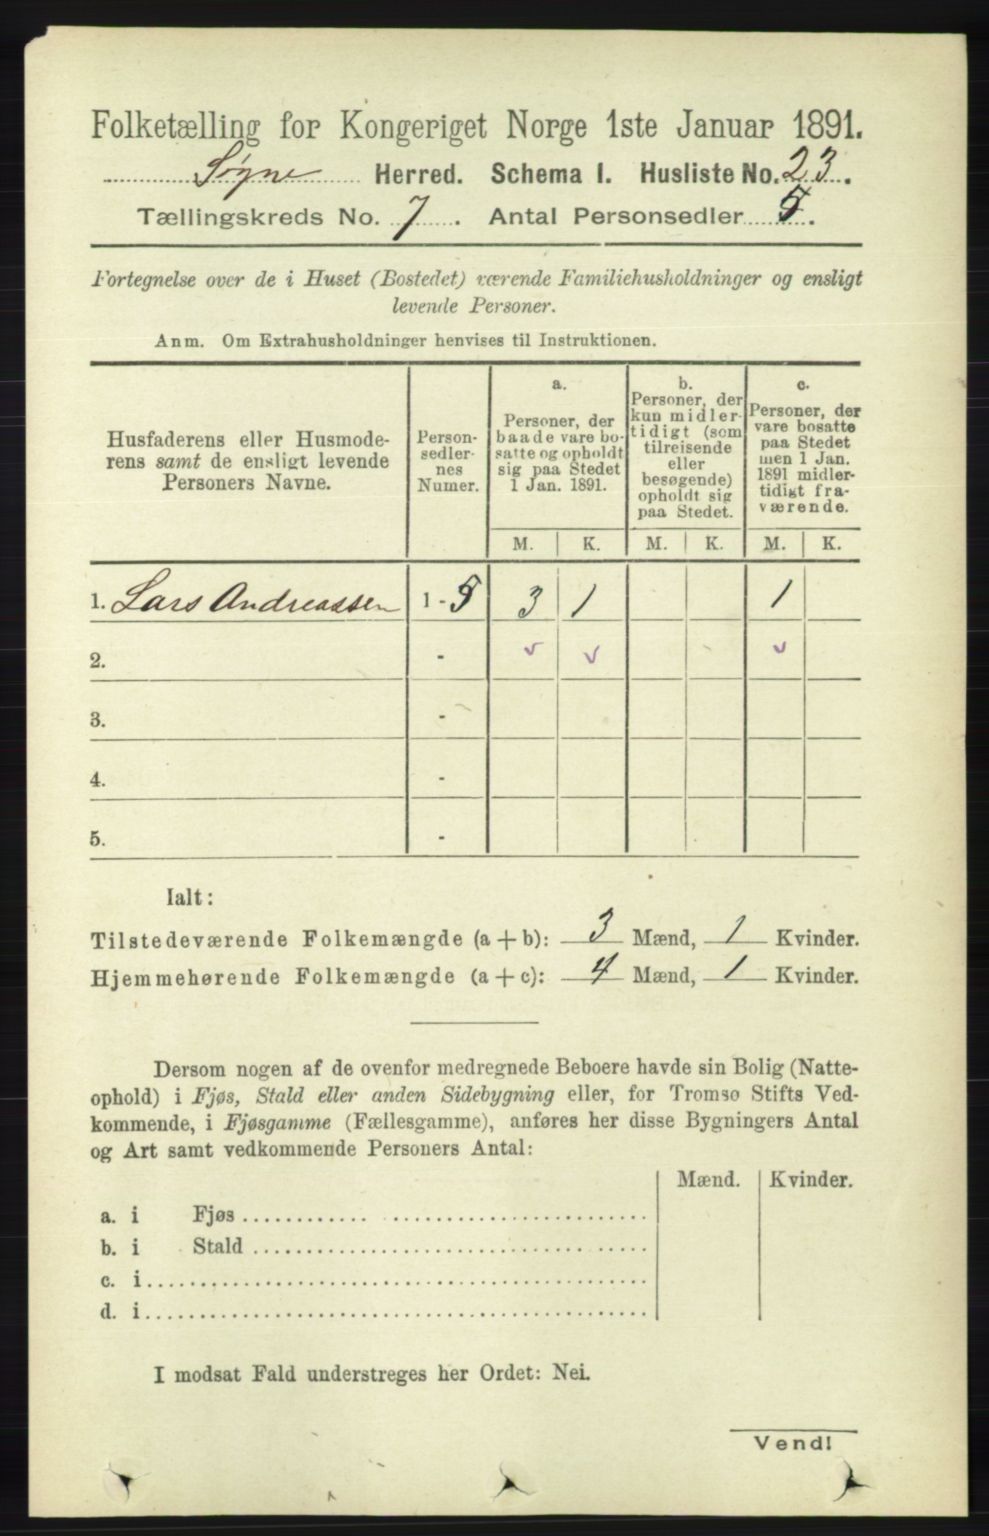 Folketælling for Kongeriget Norge 1ste Januar 1891.
Søgne Herred. Schema I. Husliste No. 23.
Tællingskreds No. 7. Antal Personsedler 5.
Fortegnelse over de i Huset (Bostedet) værende Familiehusholdninger og ensligt
levende Personer.
Anm. Om Extrahusholdninger henvises til Instruktionen.
Husfaderens eller Husmode-
rens samt de ensligt levende
Personers Navne.
Person-
sedler-
nes
Numer.
a.
Personer, der
baade vare bo-
satte og opholdt
sig paa Stedet
1 Jan. 1891.
b.
Personer, der
kun midler-
tidigt (som
tilreisende
eller
besøgende)
opholdt sig
paa Stedet.
c.
Personer, der
vare bosatte
paa Stedet
men 1 Jan.
1891 midler-
tidigt fra-
værende.
M. K. M. K. M. K.
1. Lars Andreassen 1 - 5 3 1 1
2. - v v v
3. -
4. -
5. -
Ialt:
Tilstedeværende Folkemængde (a + b): 3 Mænd, 1 Kvinder.
Hjemmehørende Folkemængde (a + c): 4 Mænd, 1 Kvinder.
Dersom nogen af de ovenfor medregnede Beboere havde sin Bolig (Natte-
ophold) i Fjøs, Stald eller anden Sidebygning eller, for Tromsø Stifts Ved-
kommende, i Fjøsgamme (Fællesgamme), anføres her disse Bygningers Antal
og Art samt vedkommende Personers Antal:
Mænd. Kvinder.
a. i Fjøs
b. i Stald
c. i
d. i
I modsat Fald understreges her Ordet: Nei.
Vend!